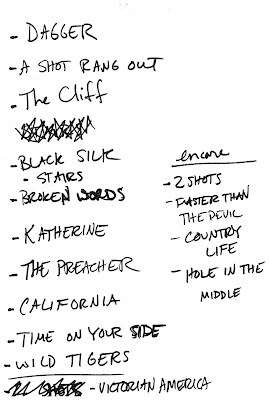 - DAGGER
- A SHOT RANG OUT
- The Cliff
- BLACK SILK
- STAIRS
- BROKEN WORDS
- KATHERINE
- THE PREACHER
- CALIFORNIA
- TIME ON YOUR SIDE
- WILD TIGERS
- VICTORIAN AMERICA
encore
- 2 SHOTS
- FASTER THAN
THE DEVIL
- COUNTRY
LIFE
- HOLE IN THE
MIDDLE